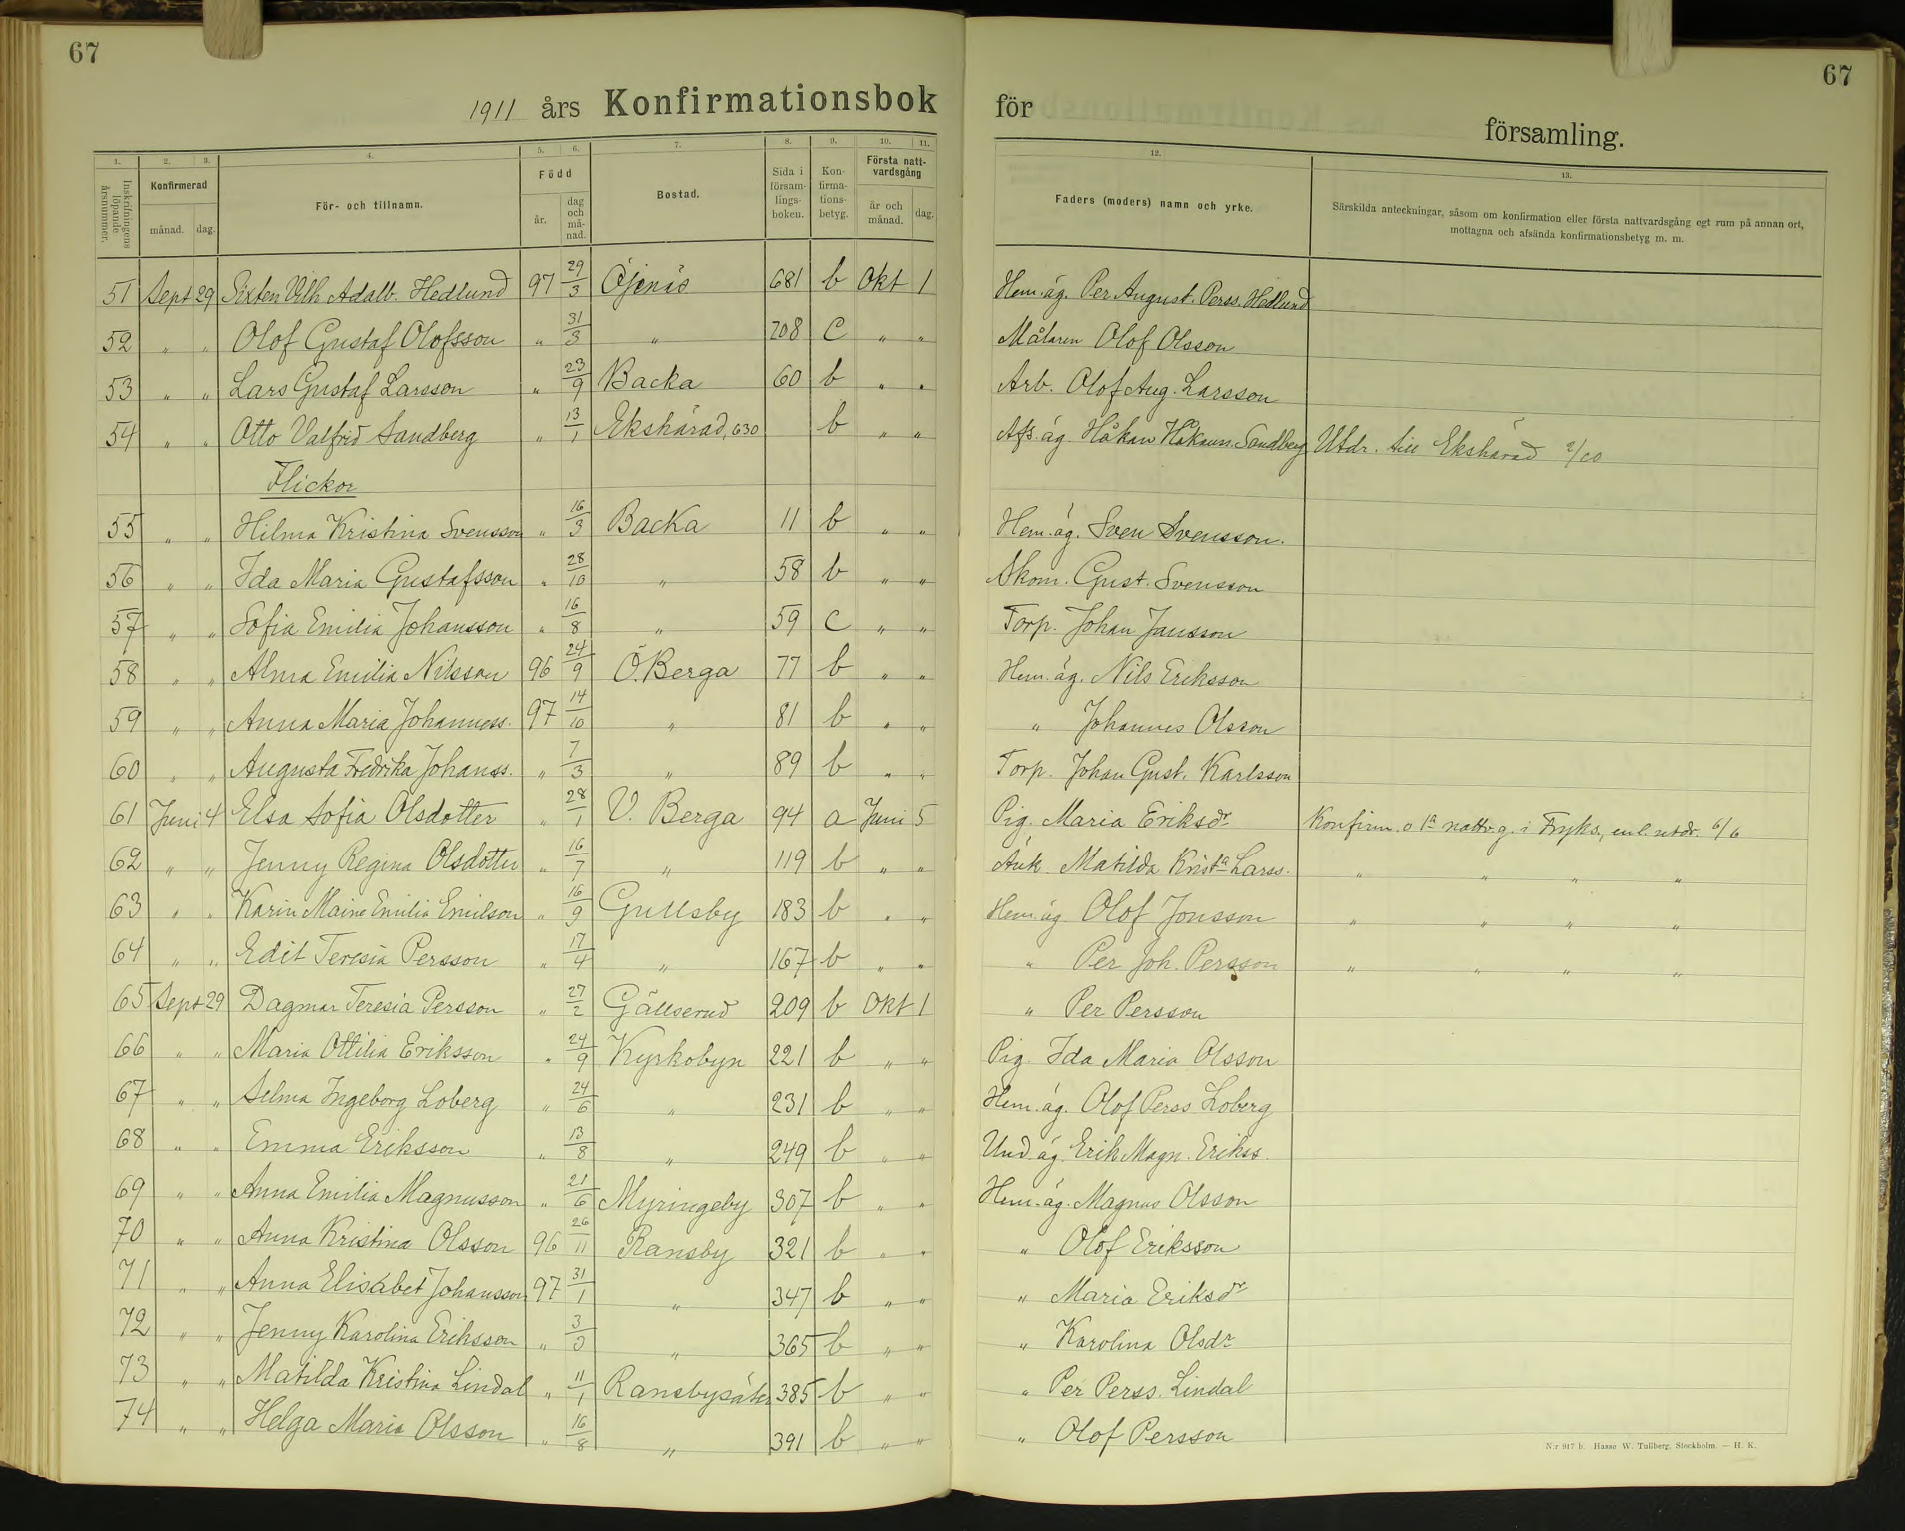 67
67
1911 års Konfirmationsbok för församling.
1. 2. 3. 4. 5. 6. 7. 8. 9. 10. 11. 12. 13.
Inskrifningens löpande årsnummer.
Konfirmerad
månad. dag.
För- och tillnamn.
Född
år. dag och må-nad.
Bostad.
Sida i försam-lings-boken.
Kon-firma-tions-betyg.
Första natt-vardsgång
år och månad. dag.
Faders (moders) namn och yrke.
Särskilda anteckningar, såsom om konfirmation eller första nattvardsgång egt rum på annan ort,
mottagna och afsända konfirmationsbetyg m. m.
51 Sept 29 Sixten Vilh. Adalb. Hedlund 97 29/3 Öjenäs 681 b Okt 1 Hem. äg. Per August Perss. Hedlund
52 " " Olof Gustaf Olofsson " 31/3 " 708 c " " Målaren Olof Olsson
53 " " Lars Gustaf Larsson " 23/9 Backa 60 b " " Arb. Olof Aug. Larsson
54 " " Otto Valfrid Sandberg " 13/1 Ekshärad, 630 b " " Afs. äg. Håkan Håkanss. Sandberg Utdr. till Ekshärad 2/10
Flickor
55 " " Hilma Kristina Svensson " 16/3 Backa 11 b " " Hem. äg. Sven Svensson.
56 " " Ida Maria Gustafsson " 28/10 " 58 b " " Skom. Gust. Svensson
57 " " Sofia Emilia Johansson " 16/8 " 59 c " " Torp. Johan Jansson
58 " " Alma Emilia Nilsson 96 24/9 Ö. Berga 77 b " " Hem. äg. Nils Eriksson
59 " " Anna Maria Johanness. 97 14/10 " 81 b " " " Johannes Olsson
60 " " Augusta Fredrika Johanss. " 7/3 " 89 b " " Torp. Johan Gust. Karlsson
61 Juni 4 Elsa Sofia Olsdotter " 28/1 V. Berga 94 a Juni 5 Pig. Maria Eriksdr Konfirm. o 1a nattv.g. i Fryks., enl. utdr. 6/6
62 " " Jenny Regina Olsdotter " 16/7 " 119 b " " Änk. Matilda Krista Larss. " " " "
63 " " Karin Maine Emilia Emilson " 16/9 Gullsby 183 b " " Hem. äg. Olof Jonsson " " " "
64 " " Edit Teresia Persson " 17/4 " 167 b " " " Per Joh. Persson " " " "
65 Sept 29 Dagmar Teresia Persson " 27/2 Gällserud 209 b Okt 1 " Per Persson
66 " " Maria Ottilia Eriksson " 24/9 Kyrkobyn 221 b " " Pig. Ida Maria Olsson
67 " " Selma Ingeborg Loberg " 24/6 " 231 b " " Hem. äg. Olof Perss Loberg
68 " " Emma Eriksson " 13/8 " 249 b " " Und. äg. Erik Magn. Erikss.
69 " " Anna Emilia Magnusson " 21/6 Myringeby 307 b " " Hem. äg. Magnus Olsson
70 " " Anna Kristina Olsson 96 26/11 Ransby 321 b " " " Olof Eriksson
71 " " Anna Elisabet Johansson 97 31/1 " 347 b " " " Maria Eriksdr
72 " " Jenny Karolina Eriksson " 3/3 " 365 b " " " Karolina Olsdr
73 " " Matilda Kristina Lindal " 11/1 Ransbysäter 385 b " " " Per Perss. Lindal
74 " " Helga Maria Olsson " 16/8 " 391 b " " " Olof Persson
N:r 917 b. Hasse W. Tullberg, Stockholm. — H. K.